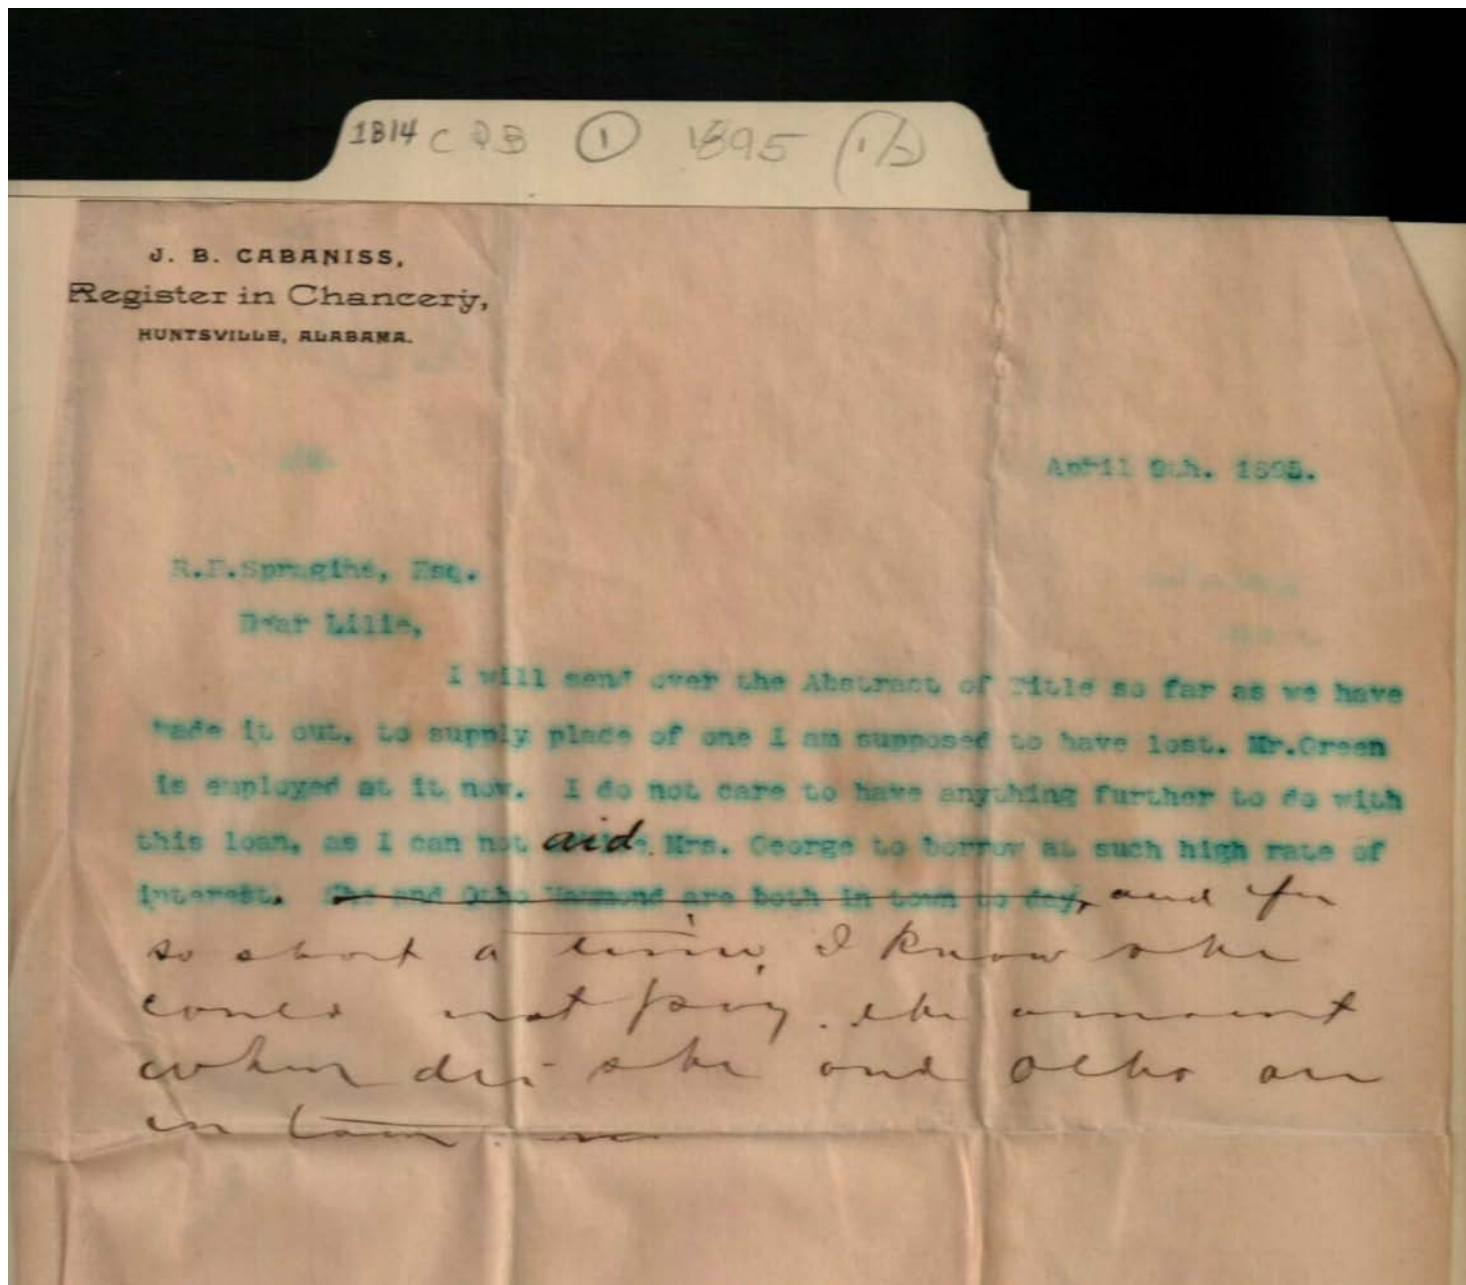 1814 C 1895
J. B. CABANISS,
Register in Chancery,
HUNTSVILLE, ALABAMA.
April 9th. 1895.
Esq.
Dear Lilie,
I will send over the Abstract of Title so far as we have
made it out, to supply place of one I am supposed to have lost. Mr.Green
is employed at it now. I do not care to have anything further to do with
this loan, as I can not aid Mrs. George to borrow at such high rate of
interest. She and Otho Hammond are both in town to day, and for
so short a time, I know she
could not pay the amount
when due- she and Otho are
in town